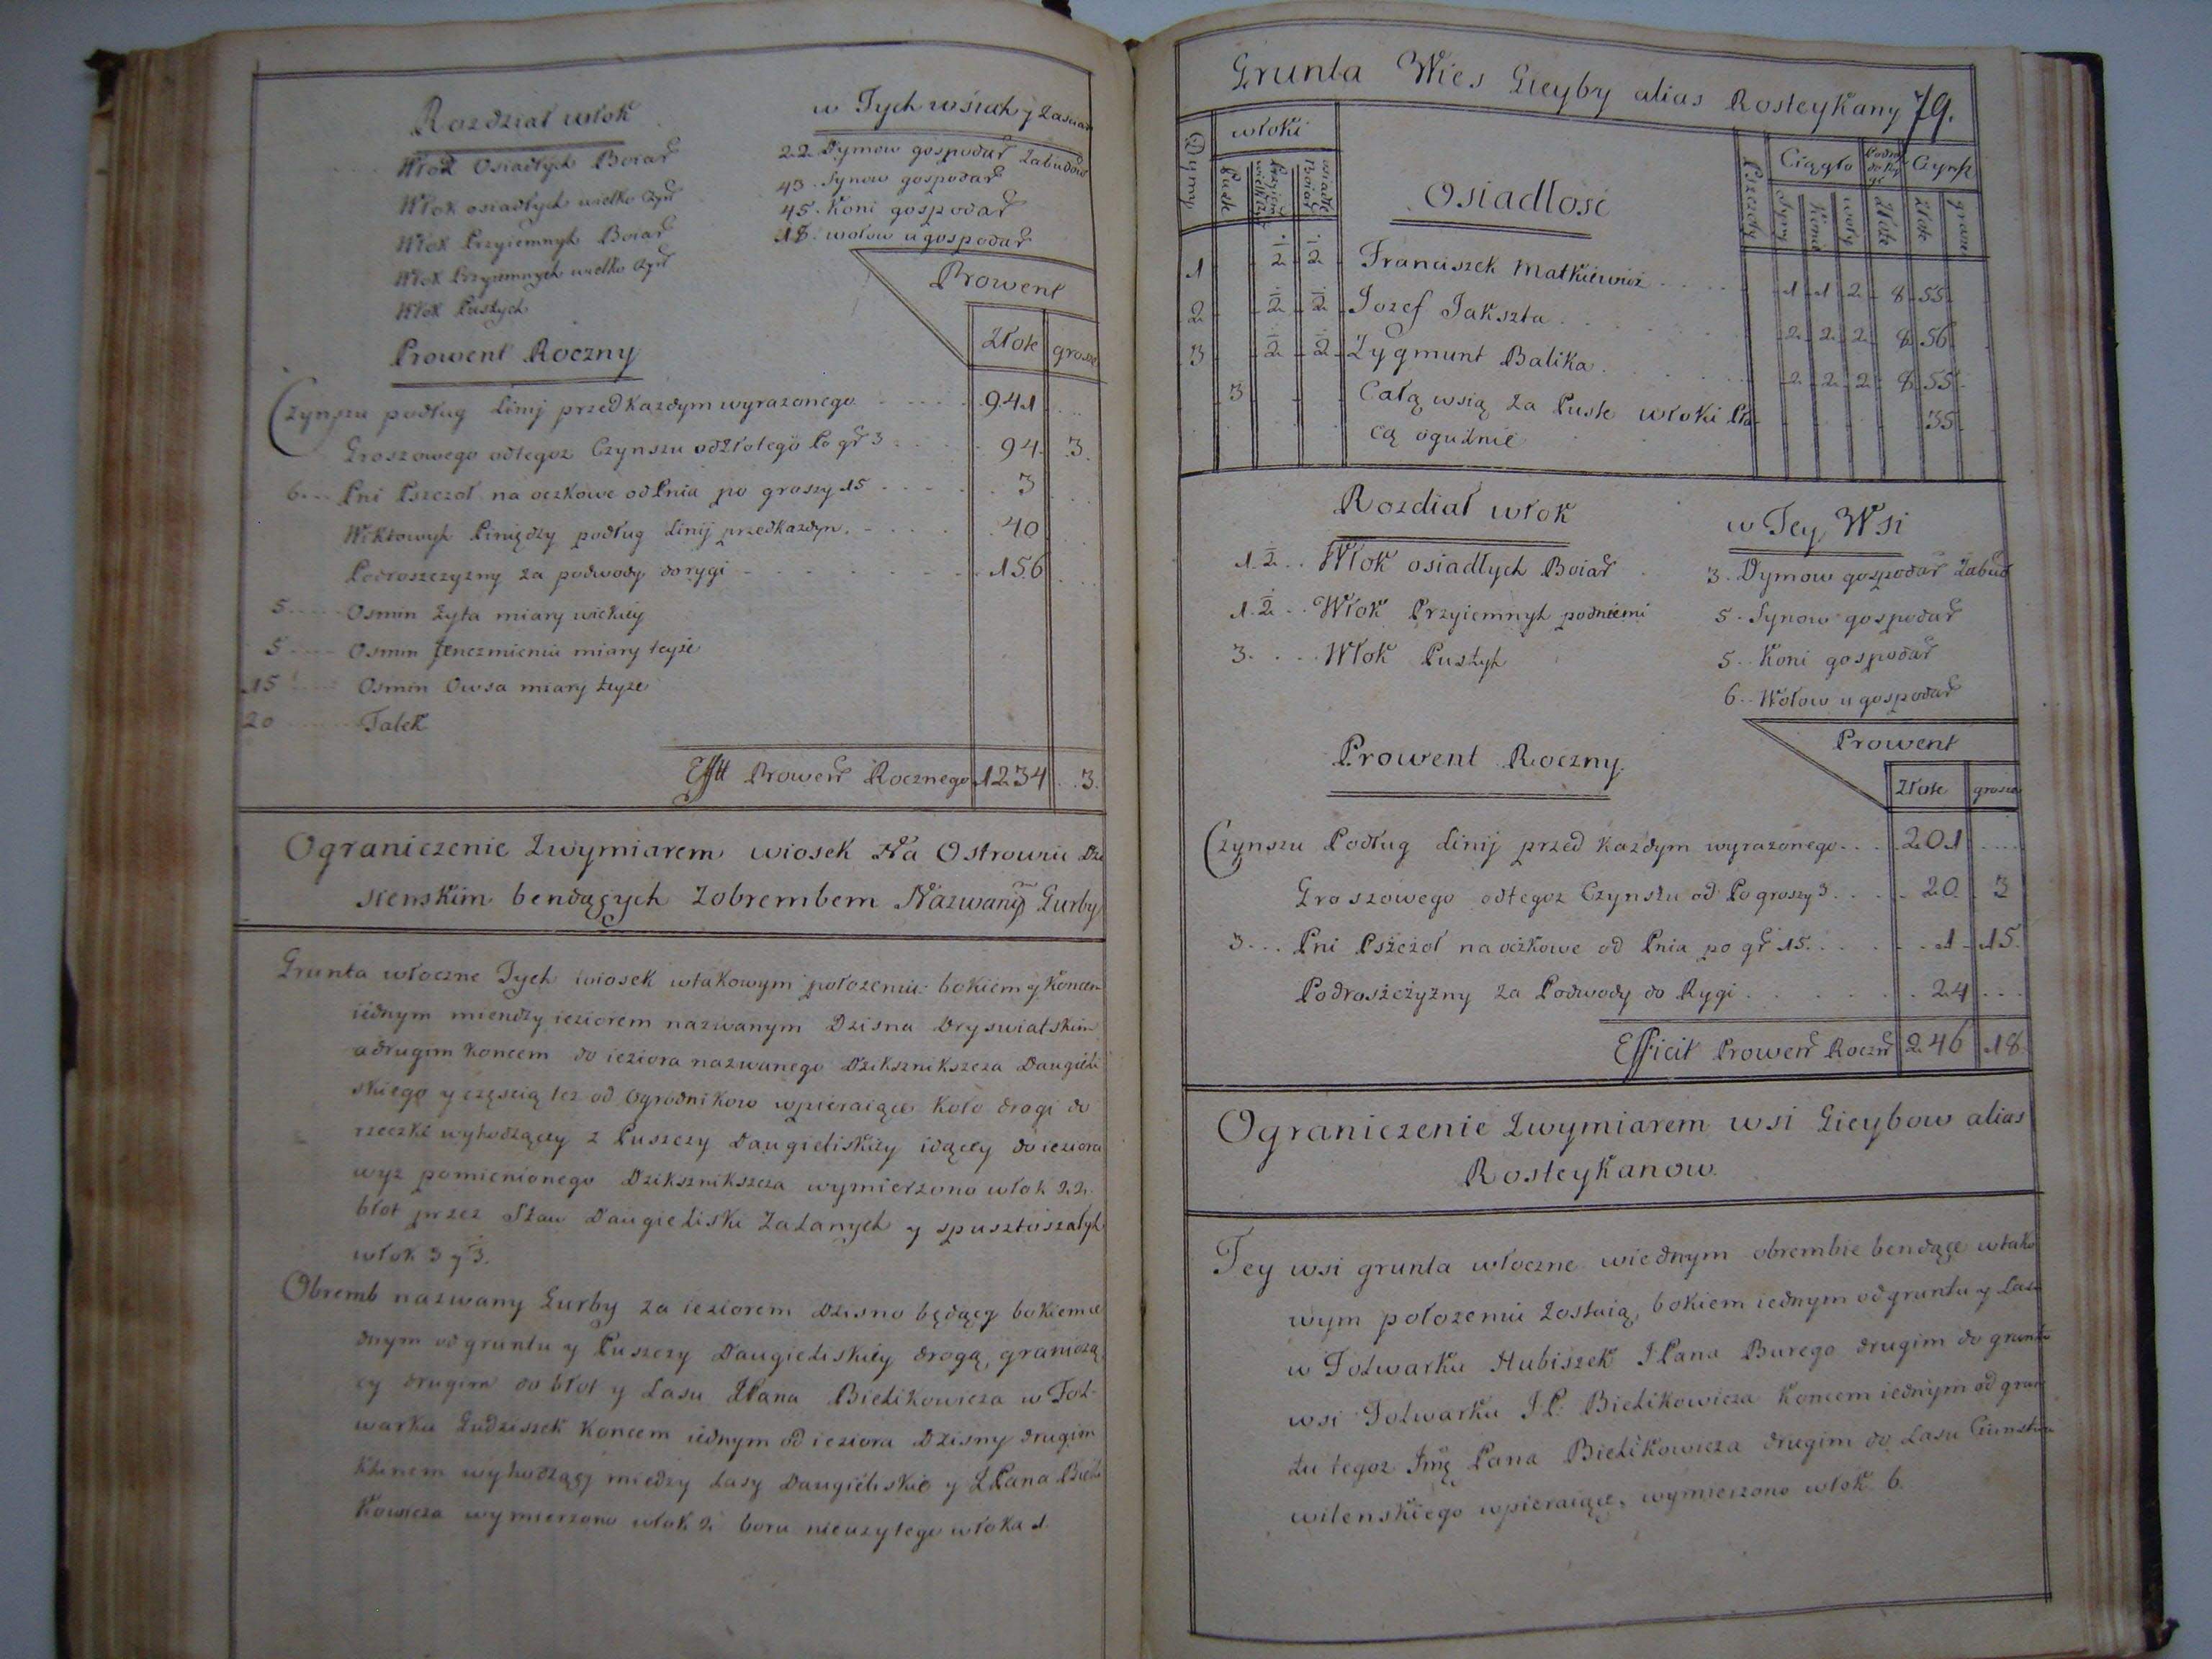 Rozdział włok
Włok Osiadłych Boiar
Włok osiadłych wielko Czyn
Włok Przyiemnych Boiar
Włok Przyiemnych wielko Czyn
Włok Pustych
w Tych wsiach y Zascian
22. Dymow gospodar Zabudow
43. Synow gospodar
45. Koni gospodar
18. wołow u gospodar
Prowent
Złote grosze
Prowent Roczny
Czynszu podług Linij przed każdym wyrazonego 941
Groszowego odtegoz Czynszu od Złotego Po gr 3 94. 3.
6. Pni Pszczoł na oczkowe od Pnia po groszy 15 3
Wiktowych Piniędzy podług Linij przedkazdym. 40
Podroszczyzny za podwody do rygi 156
5 Osmin Zyta miary wiekuiy
5 Osmin Jenczmieniu miary teyze
15 Osmin Owsa miary teyze
20 Talek
Efftt Prowent Rocznego 1234 3.
Ograniczenie Zwymiarem wiosek Na Ostrowiu Dzi
sienskim bendących Zobrembem Nazwanym Gurby
Grunta włoczne Tych wiosek wtakowym położeniu bokiem y Koncem
iednym miendzy ieziorem nazwanym Dzisna Dryswiatskim
adrugim koncem do ieziora nazwanego Dziksznikszcza Daugieli
skiego y częscią tez od Ogrodnikow wpieraiące Koło drogi do
rzeczki wyhodzącey z Puszczy Daugieliskiey idącey do ieziora
wyz pomienionego Dziksznikszcza wymierzono włok 22
błot przez Staw Daugieliski Zalanych y spustoszałych
włok 3 y 3.
Obremb nazwany Gurby za ieziorem Dzisno będący bokiem ie
dnym od gruntu y Puszczy Daugieliskiey drogą, graniczą
cy drugim do błot y Lasu JPana Bielikowicza w Fol-
warku Gudziszek Koncem iednym od ieziora Dzisny drugim
Klinem wyhodzący między Lasy Daugieliskie y JPana Bieli
Kowicza wymierzono włok 2 boru nieuzytego włoka 1.
Grunta Wies Gieyby alias Rosteykany 79.
Dymy
włoki
Puste
Przyiemne
osiadłe Boiar
Osiadłosc
Pszczoły
Ciągło
Synow
Konie
woły
Podwo do Rygi
Złote
Czynsz
Złote
grosze
1 ½ ½ Franciszek Matkiewicz 1 1 2 8 55
2 ½ ½ Jozef Jakszta 2 2 2 8 56
3 ½ ½ Zygmunt Balika 2 2 2 8 55
3 Całą wsią za Puste włoki Pła- 35
cą ogulnie
Rozdiał włok
1.½ Włok osiadłych Boiar
1.½ Włok Przyiemnych podniemi
3. Włok Pustych
w Tey Wsi
3. Dymow gospodar Zabud
5. Synow gospodar
5. Koni gospodar
6. Wołow u gospodar
Prowent Roczny.
Prowent
Złote grosze
Czynszu Podług Linij przed każdym wyrazonego 201
Groszowego odtegoz Czynszu od Po groszy 3 20. 3
3. Pni Pszczoł na oczkowe od Pnia po gr 15. 1 15.
Podroszczyzny za Podwody do Rygi 24
Efficit Prowent Roczn 246 18.
Ograniczenie Zwymiarem wsi Gieybow alias
Rosteykanow.
Tey wsi grunta włoczne wiednym obrembie bendące wtako
wym położeniu zostaią, bokiem iednym od gruntu y Lasu
w Folwarku Hubiszek JPana Burego drugim do gruntu
wsi Folwarku J.P. Bielikowicza koncem iednym od grun
tu tegoz Jmę Pana Bielikowicza drugim do Lasu
wilenskiego wpieraiące, wymierzono włok 6.